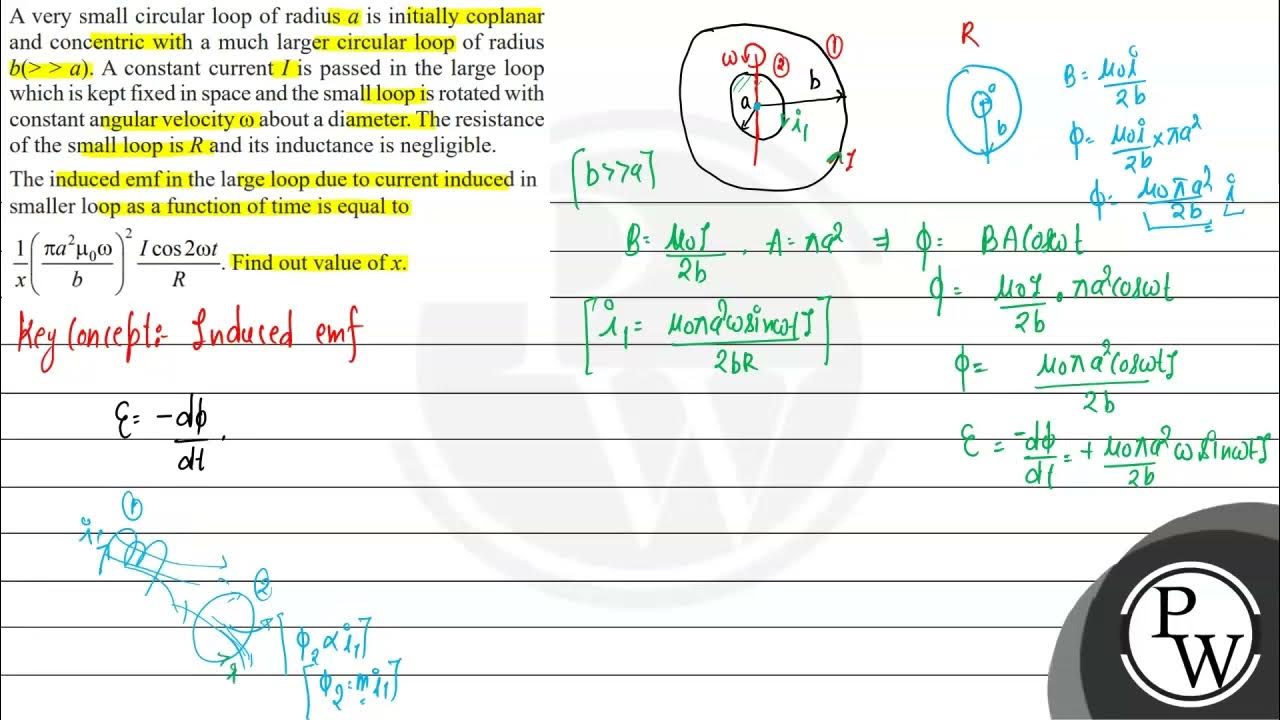 A very small circular loop of radius a is initially coplanar
and concentric with a much larger circular loop of radius
b(> > a). A constant current I is passed in the large loop
which is kept fixed in space and the small loop is rotated with
constant angular velocity ω about a diameter. The resistance
of the small loop is R and its inductance is negligible.
The induced emf in the large loop due to current induced in
smaller loop as a function of time is equal to
1/x (πa²μ₀ω/b)² I cos 2ωt/R. Find out value of x.
Key Concept:- Induced emf
ε = -dϕ/dt.
①
i₁
②
ϕ₂ ∝ i₁
ϕ₂ = m i₁
ω
②
①
b
a
i₁
I
[b>>a]
B = μ₀I/2b , A = πa² ⇒ ϕ = BA cosωt
ϕ = μ₀I/2b . πa² cosωt
[i₁ = μ₀πa²ω sinωt I/2bR]
ϕ = μ₀πa² cosωt I/2b
ε = -dϕ/dt = + μ₀πa²/2b ω sinωt I
R
b
B = μ₀i/2b
ϕ = μ₀i/2b × πa²
ϕ = μ₀πa²/2b i
P
W